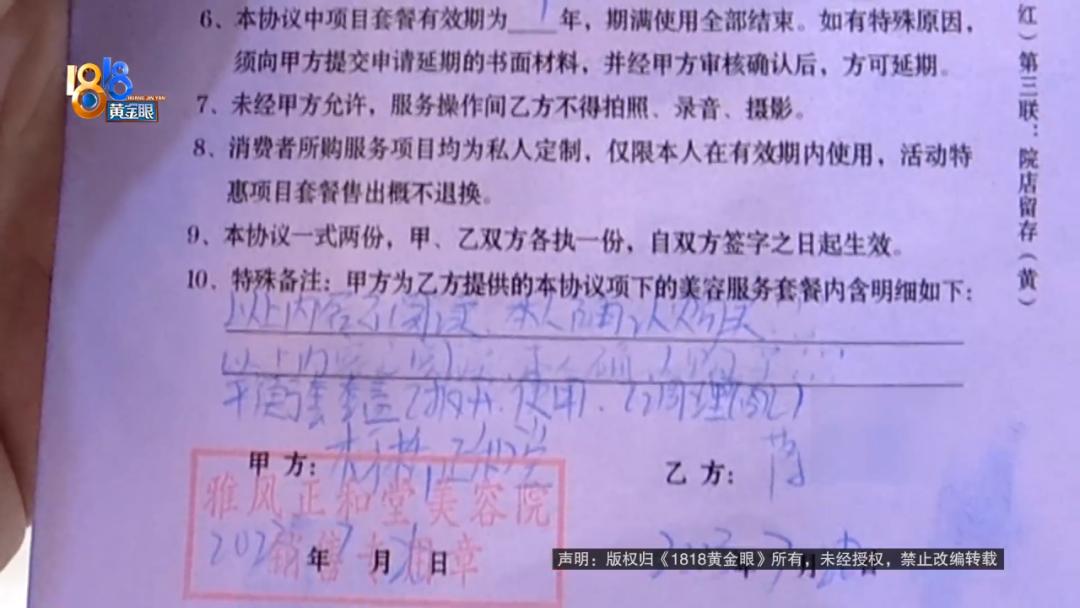 6、本协议中项目套餐有效期为___年，期满使用全部结束。如有特殊原因，
须向甲方提交申请延期的书面材料，并经甲方审核确认后，方可延期。
7、未经甲方允许，服务操作间乙方不得拍照、录音、摄影。
8、消费者所购服务项目均为私人定制，仅限本人在有效期内使用，活动特
惠项目套餐售出概不退换。
9、本协议一式两份，甲、乙双方各执一份，自双方签字之日起生效。
10、特殊备注：甲方为乙方提供的本协议项下的美容服务套餐内含明细如下：
以上内容
以上内容
甲方：
乙方：
雅风正和堂美容院
销售专用章
年 月 日
年 月
红）第三联：院店留存（黄）
1818
黄金眼
声明：版权归《1818黄金眼》所有，未经授权，禁止改编转载